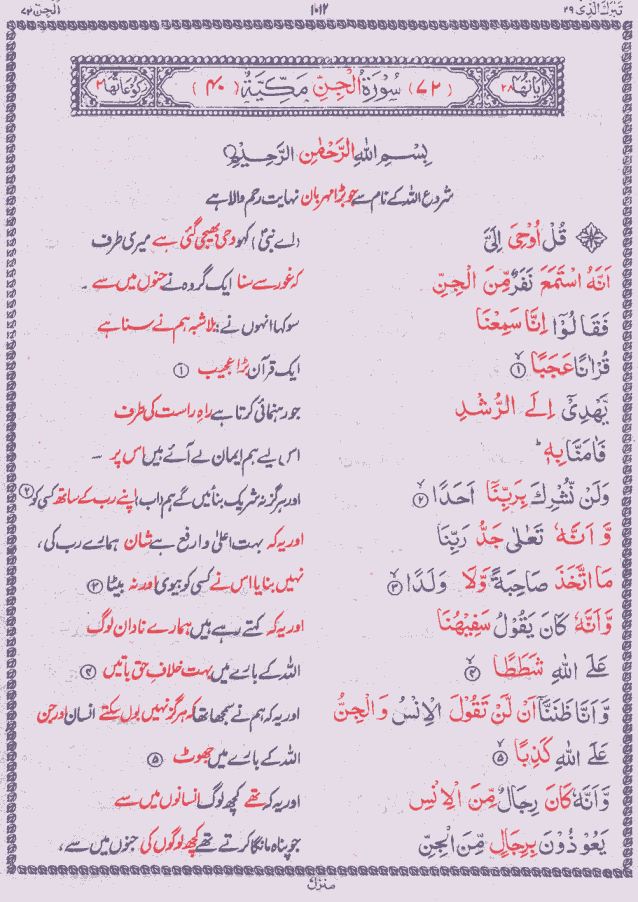 تَبٰرَكَ الَّذِي ٢٩ ١٠١٢ الجن ٧٢
اٰيَاتُهَا ٢٨ (٧٢) سُوْرَةُ الْجِنِّ مَكِّيَّةٌ (٤٠) رُكُوْعَاتُهَا ٢
بِسْمِ اللهِ الرَّحْمٰنِ الرَّحِيْمِ
شروع اللہ کے نام سے جو بڑا مہربان نہایت رحم والا ہے
قُلْ اُوْحِيَ اِلَيَّ (اے نبیؐ) کہو وحی بھیجی گئی ہے میری طرف
اَنَّهُ اسْتَمَعَ نَفَرٌ مِّنَ الْجِنِّ کہ غور سے سنا ایک گروہ نے جنوں میں سے ۔
فَقَالُوْٓا اِنَّا سَمِعْنَا سو کہا انہوں نے: بلاشبہ ہم نے سنا ہے
قُرْاٰنًا عَجَبًا ۝١ ایک قرآن بڑا عجیب ۝١
يَّهْدِيْٓ اِلَى الرُّشْدِ جو رہنمائی کرتا ہے راہِ راست کی طرف
فَاٰمَنَّا بِهٖ ؕ اس لیے ہم ایمان لے آئے ہیں اس پر ۔
وَلَنْ نُّشْرِكَ بِرَبِّنَآ اَحَدًا ۝٢ اور ہرگز نہ شریک بنائیں گے ہم (اب) اپنے رب کے ساتھ کسی کو ۝٢
وَّاَنَّهٗ تَعٰلٰى جَدُّ رَبِّنَا اور یہ کہ بہت اعلیٰ و ارفع ہے شان ہمارے رب کی،
مَا اتَّخَذَ صَاحِبَةً وَّلَا وَلَدًا ۝٣ نہیں بنایا اس نے کسی کو بیوی اور نہ بیٹا ۝٣
وَّاَنَّهٗ كَانَ يَقُوْلُ سَفِيْهُنَا اور یہ کہ کہتے رہے ہیں ہمارے نادان لوگ
عَلَى اللهِ شَطَطًا ۝٤ اللہ کے بارے میں بہت خلافِ حق باتیں ۝٤
وَّاَنَّا ظَنَنَّآ اَنْ لَّنْ تَقُوْلَ الْاِنْسُ وَالْجِنُّ اور یہ کہ ہم نے سمجھا تھا کہ ہرگز نہیں بول سکتے انسان اور جن
عَلَى اللهِ كَذِبًا ۝٥ اللہ کے بارے میں جھوٹ ۝٥
وَّاَنَّهٗ كَانَ رِجَالٌ مِّنَ الْاِنْسِ اور یہ کہ تھے کچھ لوگ انسانوں میں سے
يَعُوْذُوْنَ بِرِجَالٍ مِّنَ الْجِنِّ جو پناہ مانگا کرتے تھے کچھ لوگوں کی جنوں میں سے،
منزل